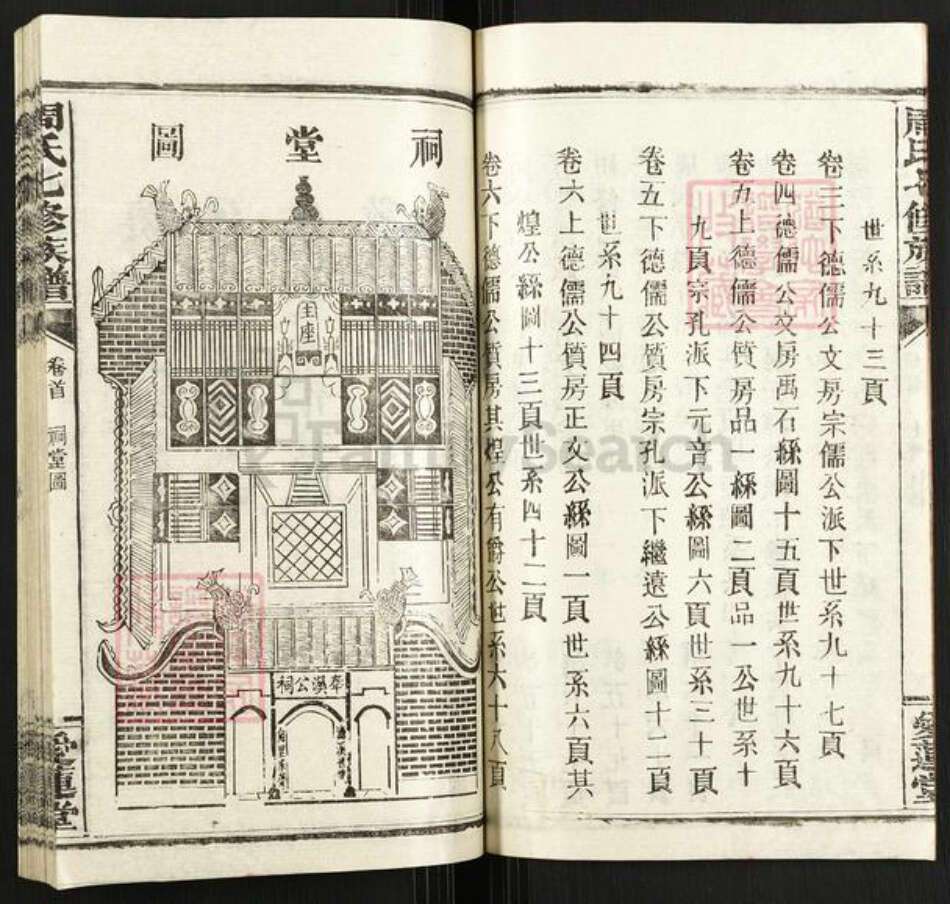 周氏七修族譜
愛蓮堂
世系九十三頁
卷三下德儒公文房宗儒公派下世系九十七頁
卷四德儒公文房禹石綵圖十五頁世系九十六頁
卷五上德儒公質房品一綵圖二頁品一公世系十
九頁宗孔派下元音公綵圖六頁世系三十一頁
卷五下德儒公質房宗孔派下繼遠公綵圖十二頁
世系九十四頁
卷六上德儒公質房正文公綵圖一頁世系六頁其
煌公綵圖十三頁世系四十二頁
卷六下德儒公質房其煌公有爵公世系六十八頁
祠堂圖
主座
公祠
周氏七修族譜
卷首
祠堂圖
愛蓮堂
FamilySearch